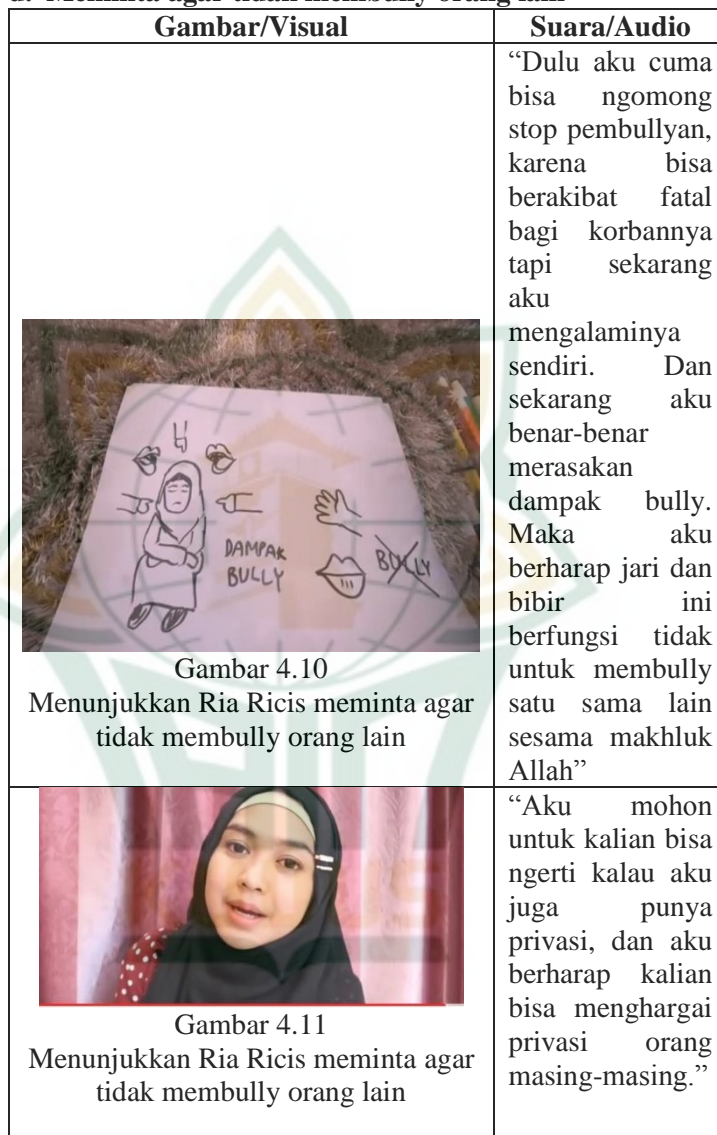 d. Meminta agar tidak membully orang lain
Gambar/Visual
Suara/Audio
DAMPAK
BULLY
BULLY
Gambar 4.10
Menunjukkan Ria Ricis meminta agar
tidak membully orang lain
“Dulu aku cuma
bisa ngomong
stop pembullyan,
karena bisa
berakibat fatal
bagi korbannya
tapi sekarang
aku
mengalaminya
sendiri. Dan
sekarang aku
benar-benar
merasakan
dampak bully.
Maka aku
berharap jari dan
bibir ini
berfungsi tidak
untuk membully
satu sama lain
sesama makhluk
Allah”
Gambar 4.11
Menunjukkan Ria Ricis meminta agar
tidak membully orang lain
“Aku mohon
untuk kalian bisa
ngerti kalau aku
juga punya
privasi, dan aku
berharap kalian
bisa menghargai
privasi orang
masing-masing.”